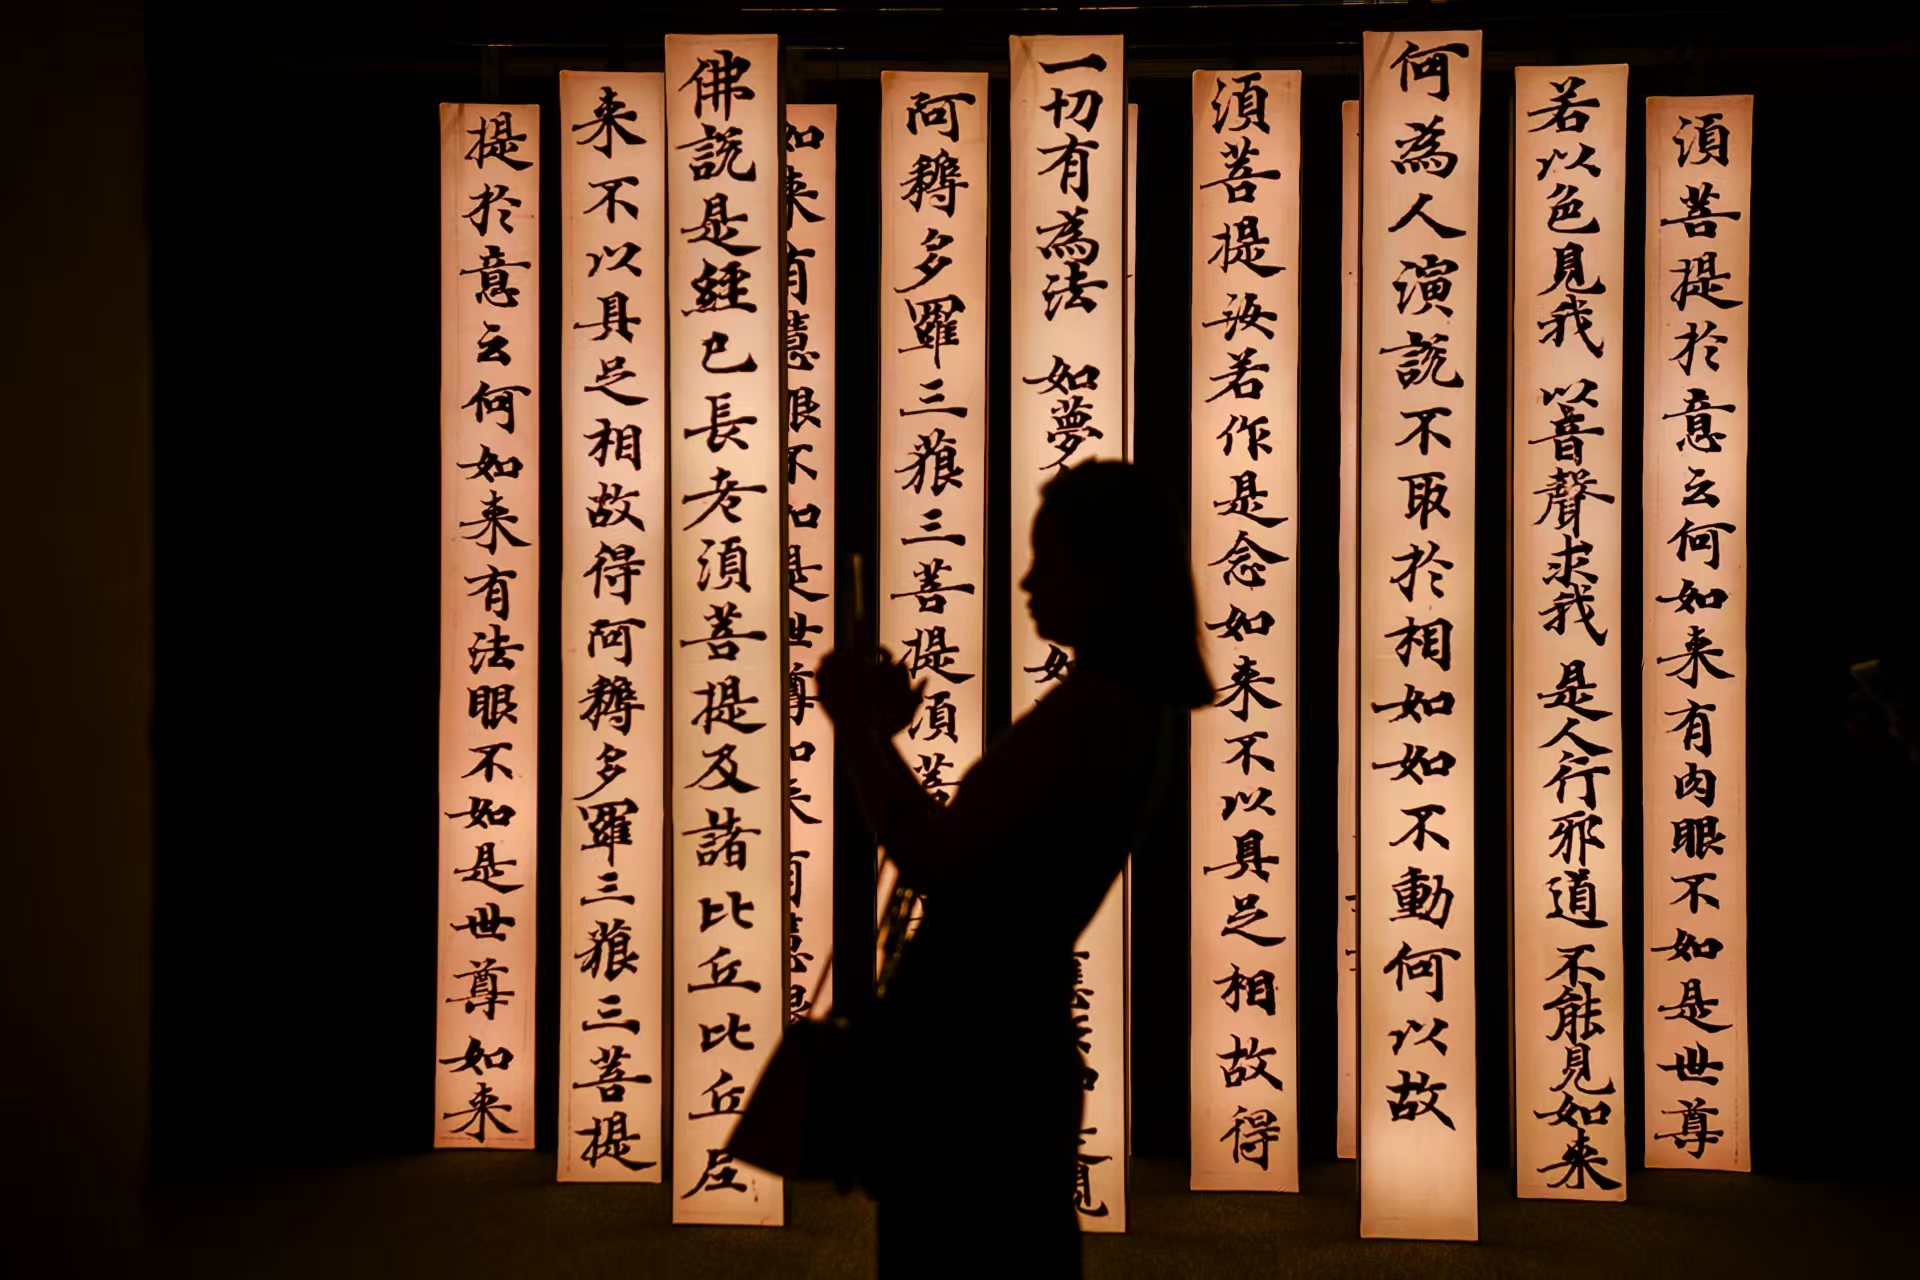 須菩提於意云何如来有肉眼不如是世尊
若以色見我 以音聲求我 是人行邪道 不能見如来
何為人演説不取於相如如不動何以故
須菩提汝若作是念如来不以具足相故得
一切有為法 如夢
阿耨多羅三藐三菩提須菩
如来有慧眼不如是世尊如来有慧眼
佛説是經已長老須菩提及諸比丘比丘尼
来不以具足相故得阿耨多羅三藐三菩提
提於意云何如来有法眼不如是世尊如来